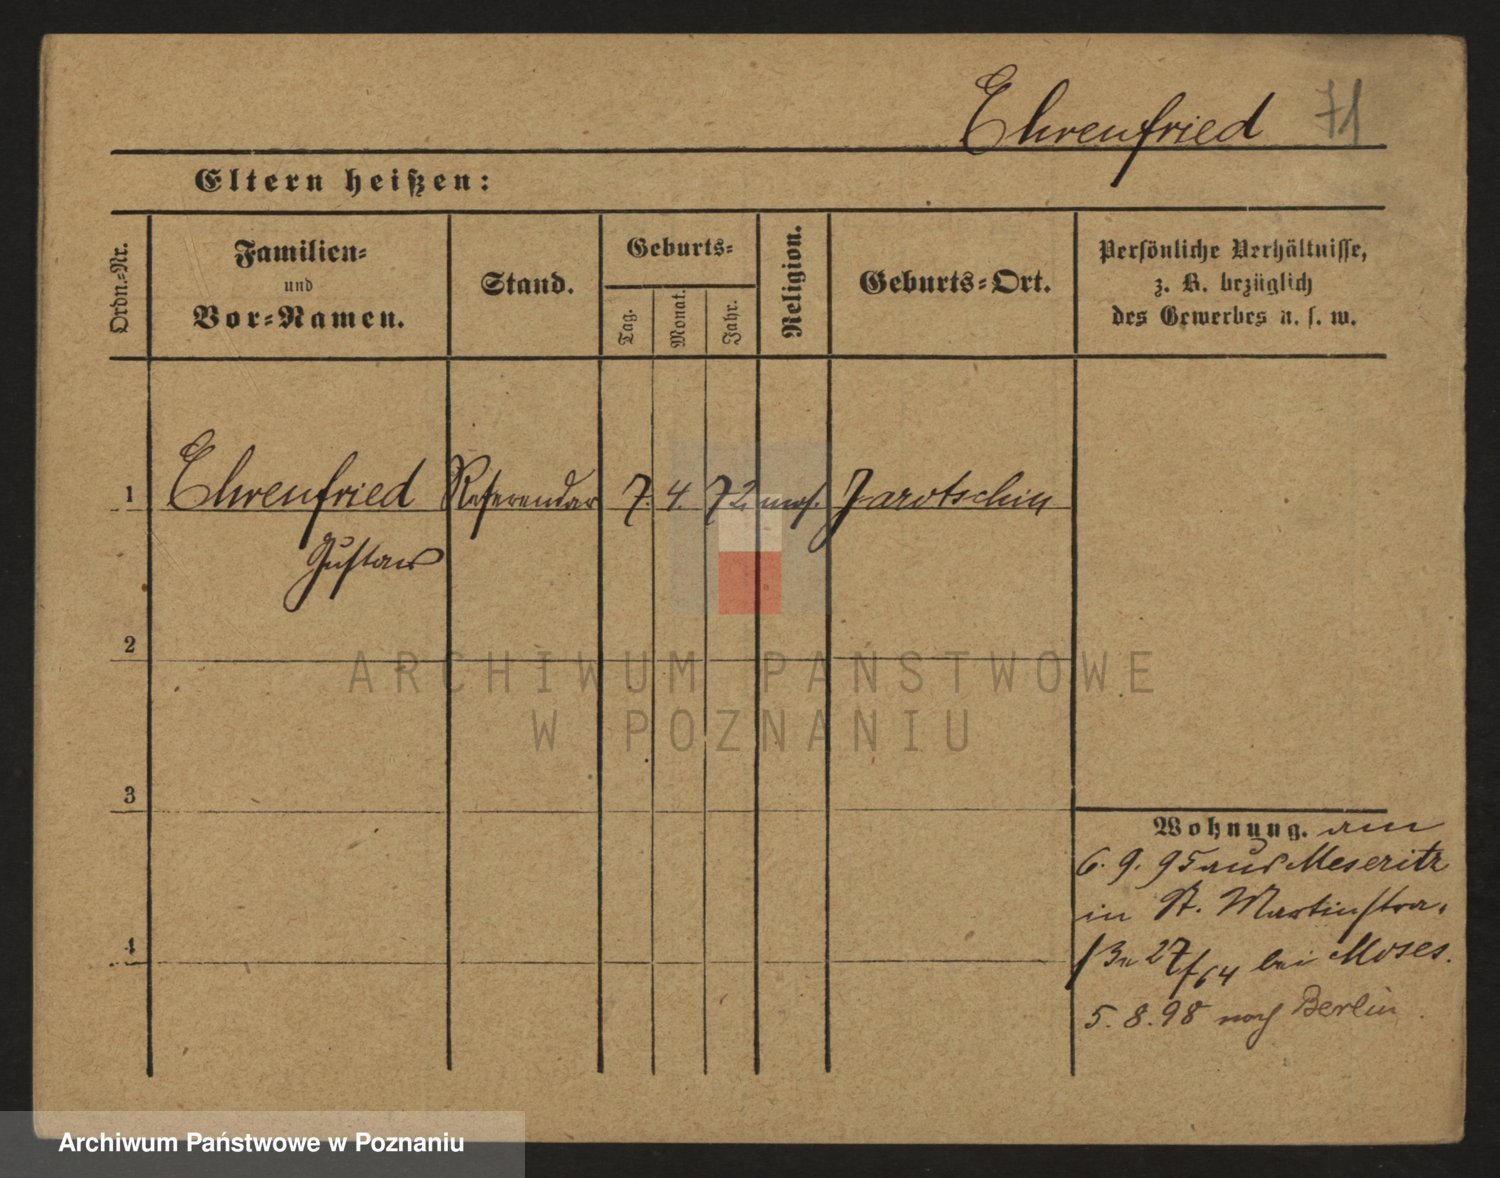 Ehrenfried 71
Eltern heißen:
Ordn.-Nr.
Familien-
und
Vor-Namen.
Stand.
Geburts-
Tag.
Monat.
Jahr.
Religion.
Geburts-Ort.
Persönliche Verhältnisse,
z. B. bezüglich
des Gewerbes u. s. w.
1 Ehrenfried Referendar 7. 4. 72. mos. Jarotschin
Gustav
2
3
4
Wohnung. am
6. 9. 95 aus Meseritz
in St. Martinstra.
27/64 bei Moses.
5. 8. 98 nach Berlin
ARCHIWUM PAŃSTWOWE
W POZNANIU
Archiwum Państwowe w Poznaniu